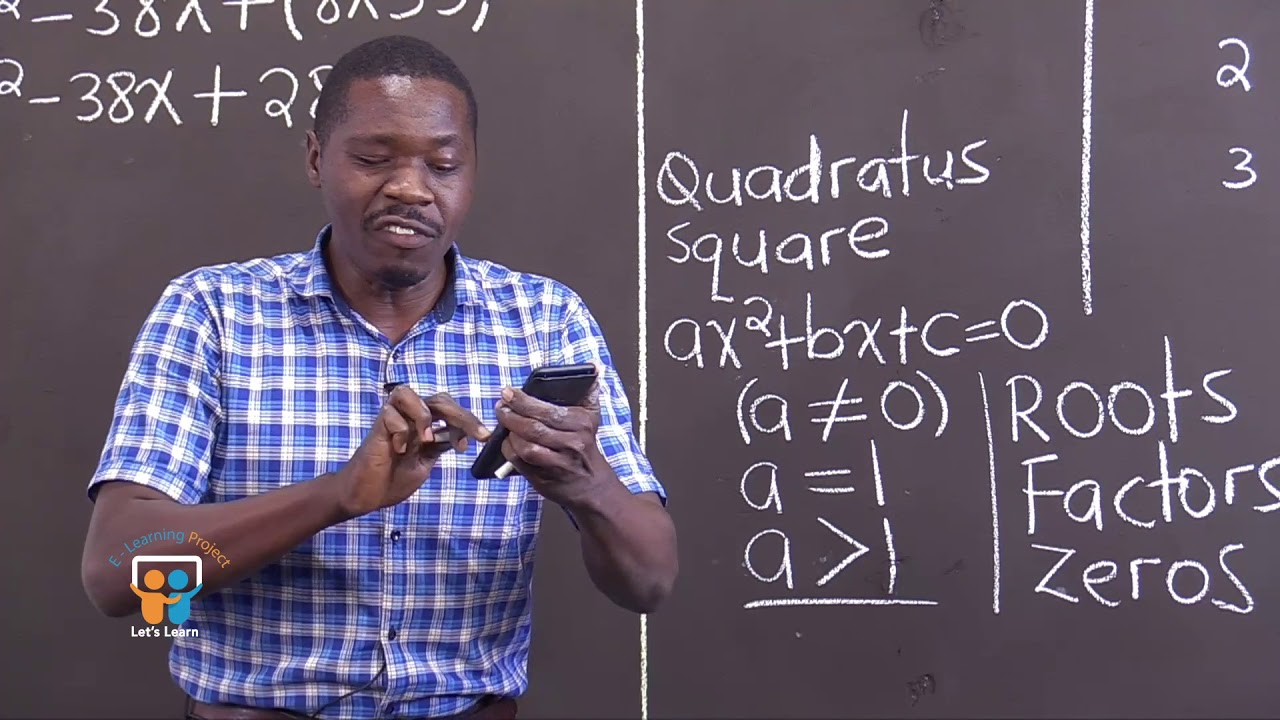 ²-38x+(8x35)
²-38x+28
Quadratus
square
ax²+bx+c=0
(a≠0)
a=1
a>1
Roots
Factors
Zeros
2
3
E-Learning Project
Let's Learn